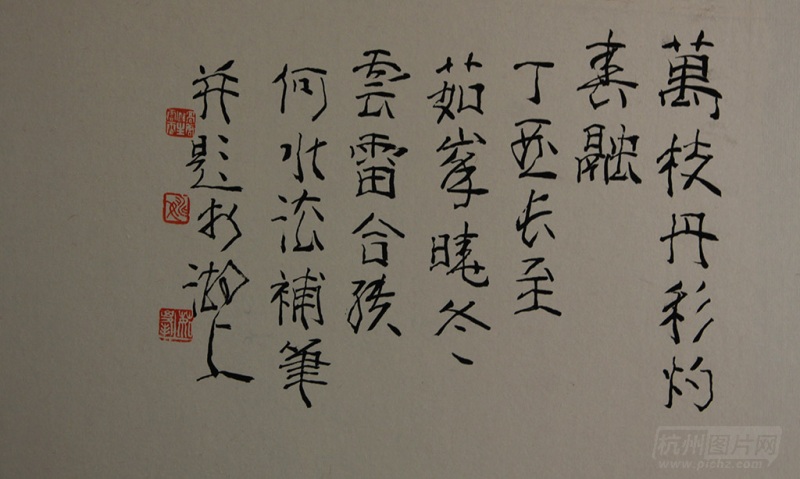 萬枝丹彩灼
春融
丁亥长至
茹峯曉冬、
雲雷合績
何水法補筆
并题於湖上
杭州图片网
www.pichz.com